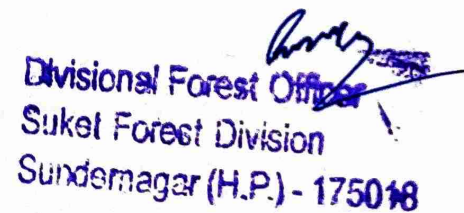 Divisional Forest Officer
Suket Forest Division
Sundernagar (H.P.) - 175018